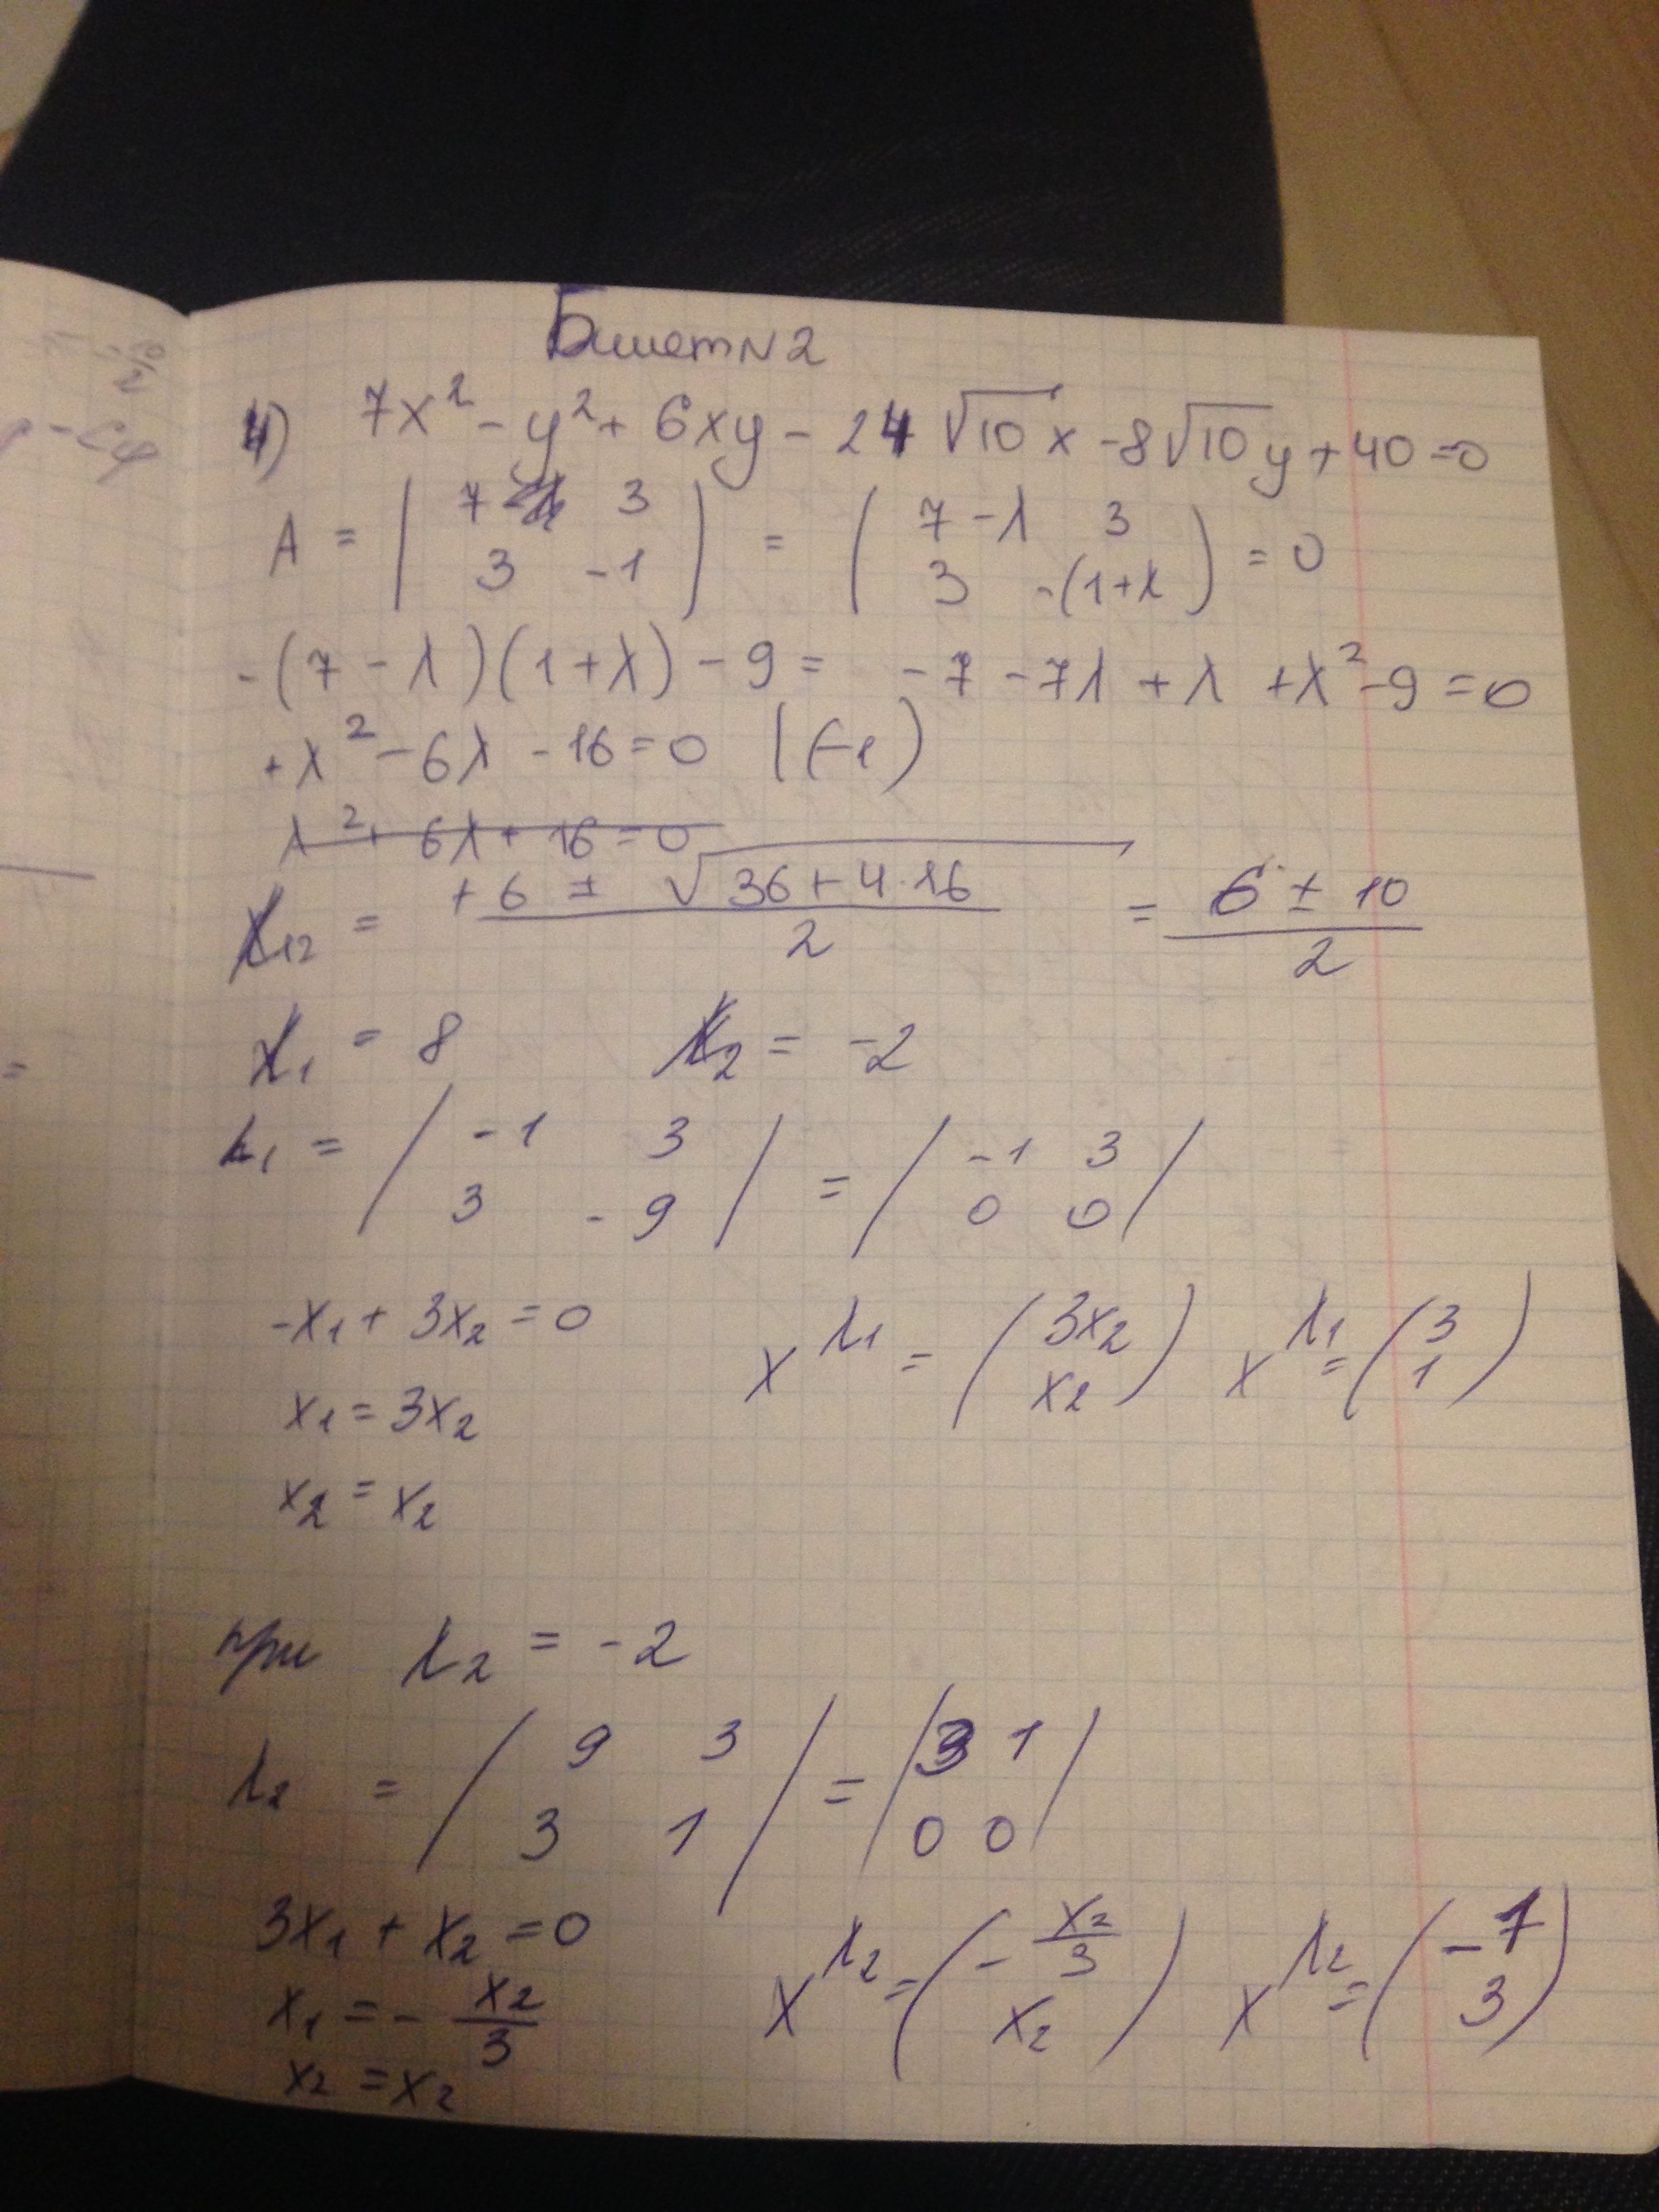 Билет N2
4) 7x² - y² + 6xy - 24√10 x - 8√10 y + 40 = 0
A = ( 7 3 ) = ( 7-λ 3 ) = 0
3 -1 3 -(1+λ)
-(7-λ)(1+λ) - 9 = -7 - 7λ + λ + λ² - 9 = 0
+λ² - 6λ - 16 = 0 |(-1)
λ² + 6λ + 16 = 0
λ₁₂ = +6 ± √36+4·16 / 2 = 6 ± 10 / 2
λ₁ = 8 λ₂ = -2
λ₁ = ( -1 3 ) = ( -1 3 )
3 -9 0 0
-x₁ + 3x₂ = 0 x^λ₁ = ( 3x₂ x₂ ) x^λ₁ = ( 3 1 )
x₁ = 3x₂
x₂ = x₂
при λ₂ = -2
λ₂ = ( 9 3 ) = ( 3 1 )
3 1 0 0
3x₁ + x₂ = 0 x^λ₂ = ( -x₂/3 x₂ ) x^λ₂ = ( -1 3 )
x₁ = - x₂/3
x₂ = x₂